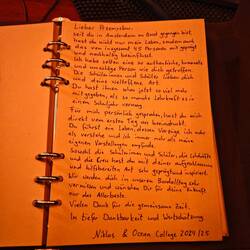 Lieber Przemysław,
seit du in Amsterdam an Bord gegangen bist,
hast du nicht nur mein Leben, sondern auch
das von insgesamt 45 Personen mit geprägt
und nachhaltig beeinflusst.
Ich habe selten eine so authentische, humorvolle
und unendliche Person wie dich getroffen.
Die Schülerinnen und Schüler lieben dich
und deine weltoffene Art.
Du hast ihnen jetzt schon so viel mehr
mit gegeben, als so manche Lehrkraft es in
einem Schuljahr vermag.
Für mich persönlich gesprochen, hast du mich
direkt vom ersten Tag an beeindruckt.
Du führst ein Leben, dessen Vorzüge ich mehr
als verstehe und ich immer mehr als meine
eigenen Vorstellungen empfinde.
Sowohl die Schülerinnen und Schüler, die Lehrkräfte
und die Crew hast du mit deiner aufgeschlossenen
und hilfsbereiten Art sehr geprägt und inspiriert.
Wir werden dich in unserem Bordalltag sehr
vermissen und wünschen Dir für deine Zukunft
nur das Allerbeste.
Vielen Dank für die gemeinsame Zeit.
In tiefer Dankbarkeit und Wertschätzung
Niklas & Ocean College 2024/25